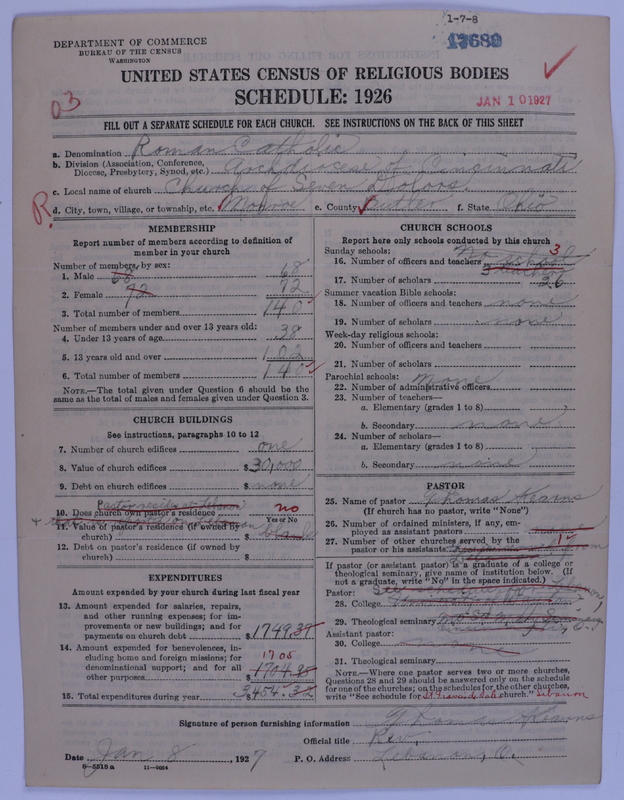 1-7-8
17689
DEPARTMENT OF COMMERCE
BUREAU OF THE CENSUS
WASHINGTON
UNITED STATES CENSUS OF RELIGIOUS BODIES
SCHEDULE: 1926
JAN 10 1927
03
FILL OUT A SEPARATE SCHEDULE FOR EACH CHURCH. SEE INSTRUCTIONS ON THE BACK OF THIS SHEET
a. Denomination Roman Catholic
b. Division (Association, Conference, Diocese, Presbytery, Synod, etc.) Archdiocese of Cincinnati
c. Local name of church Church of Seven Dolors.
R. d. City, town, village, or township, etc. Monroe e. County Butler f. State Ohio
MEMBERSHIP
Report number of members according to definition of
member in your church
Number of members, by sex:
1. Male 68 68
2. Female 72 72
3. Total number of members 140
Number of members under and over 13 years old:
4. Under 13 years of age 38
5. 13 years old and over 102
6. Total number of members 140
NOTE.—The total given under Question 6 should be the
same as the total of males and females given under Question 3.
CHURCH BUILDINGS
See instructions, paragraphs 10 to 12
7. Number of church edifices one
8. Value of church edifices $30,000
9. Debt on church edifices $ none
Pastor resides at Lebanon
10. Does church own pastor's residence no
Yes or No
11. Value of pastor's residence (if owned by
church) $
12. Debt on pastor's residence (if owned by
church) $
EXPENDITURES
Amount expended by your church during last fiscal year
13. Amount expended for salaries, repairs,
and other running expenses; for im-
provements or new buildings; and for
payments on church debt $1749.37
14. Amount expended for benevolences, in-
cluding home and foreign missions; for
denominational support; and for all
other purposes 1705 $1704.95
15. Total expenditures during year $3454.32
CHURCH SCHOOLS
Report here only schools conducted by this church
Sunday schools:
16. Number of officers and teachers 3
17. Number of scholars 26
Summer vacation Bible schools:
18. Number of officers and teachers none
19. Number of scholars none
Week-day religious schools:
20. Number of officers and teachers
21. Number of scholars
Parochial schools:
22. Number of administrative officers None
23. Number of teachers—
a. Elementary (grades 1 to 8)
b. Secondary none
24. Number of scholars—
a. Elementary (grades 1 to 8)
b. Secondary none
PASTOR
25. Name of pastor Thomas Kearns
(If church has no pastor, write "None")
26. Number of ordained ministers, if any, em-
ployed as assistant pastors
27. Number of other churches served by the
pastor or his assistants 1
If pastor (or assistant pastor) is a graduate of a college or
theological seminary, give name of institution below. (If
not a graduate, write "No" in the space indicated.)
Pastor:
28. College
29. Theological seminary
Assistant pastor:
30. College none
31. Theological seminary
NOTE.—Where one pastor serves two or more churches,
Questions 28 and 29 should be answered only on the schedule
for one of the churches; on the schedules for the other churches,
write "See schedule for St Francis de Sale church." Lebanon
Signature of person furnishing information Thomas Kearns
Official title Rev.
Date Jan 8, 1927 P. O. Address Lebanon, O.
8-5515a 11-9064